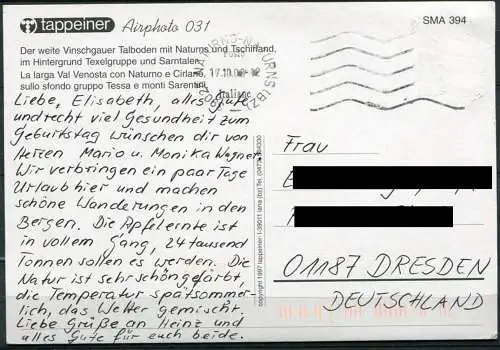 tappeiner Airphoto 031
SMA 394
Der weite Vinschgauer Talboden mit Naturns und Tschirland,
im Hintergrund Texelgruppe und Sarntaler
La larga Val Venosta con Naturno e Cirlano,
sullo sfondo gruppo Tessa e monti Sarentini
NATURNO-NATURNS (BZ)
Italiane
Liebe, Elisabeth, alles Gute
und recht viel Gesundheit zum
Geburtstag wünschen dir von
Herzen Mario u. Monika Wagner
Wir verbringen ein paar Tage
Urlaub hier und machen
schöne Wanderungen in den
Bergen. Die Apfelernte ist
in vollem Gang, 24 tausend
Tonnen sollen es werden. Die
Natur ist sehr schön gefärbt,
die Temperatur spätsommer-
lich, das Wetter gemischt.
Liebe Grüße an Heinz und
alles Gute für euch beide.
copyright 1997 tappeiner I-39011 lana (bz) Tel.
Frau
01187 DRESDEN
DEUTSCHLAND